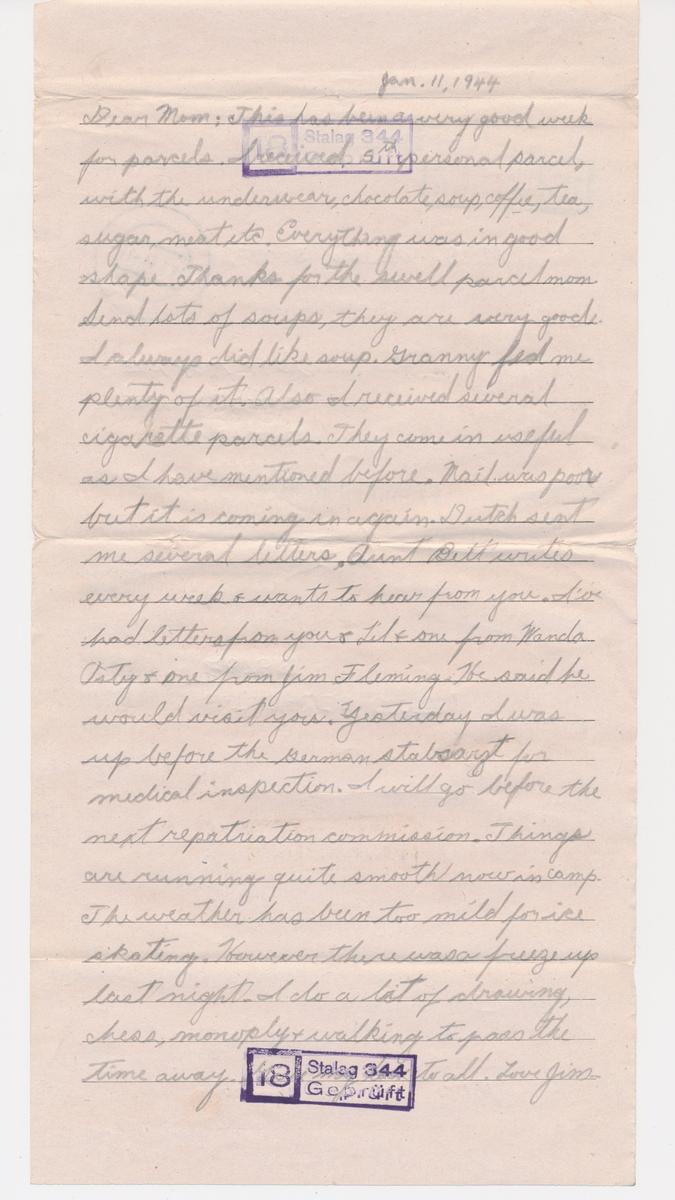 Jan. 11, 1944
Dear Mom: This has been a very good week
18 Stalag 344
Geprüft
for parcels. I received 5th personal parcel,
with the underwear, chocolate, soup, coffee, tea,
sugar, meat etc. Everything was in good
shape. Thanks for the swell parcel mom.
Send lots of soups, they are very good.
I always did like soup. Granny fed me
plenty of it. Also I received several
cigarette parcels. They come in useful
as I have mentioned before. Mail was poor
but it is coming in again. Dutch sent
me several letters. Aunt Bell writes
every week & wants to hear from you. I've
had letters from you & Lil & one from Wanda
& one from Jim Fleming. He said he
would visit you. Yesterday I was
up before the German stabsarzt for
medical inspection. I will go before the
next repatriation commission. Things
are running quite smooth now in camp.
The weather has been too mild for ice
skating. However there was a freeze up
last night. I do a lot of drawing,
chess, monoply & walking to pass the
time away. to all. Love Jim
18 Stalag 344
Geprüft